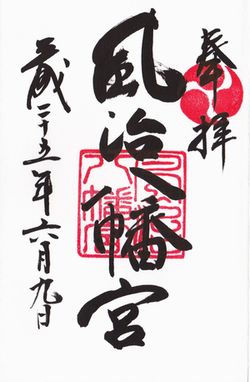 奉拝
風治八幡宮
平成二十五年六月九日